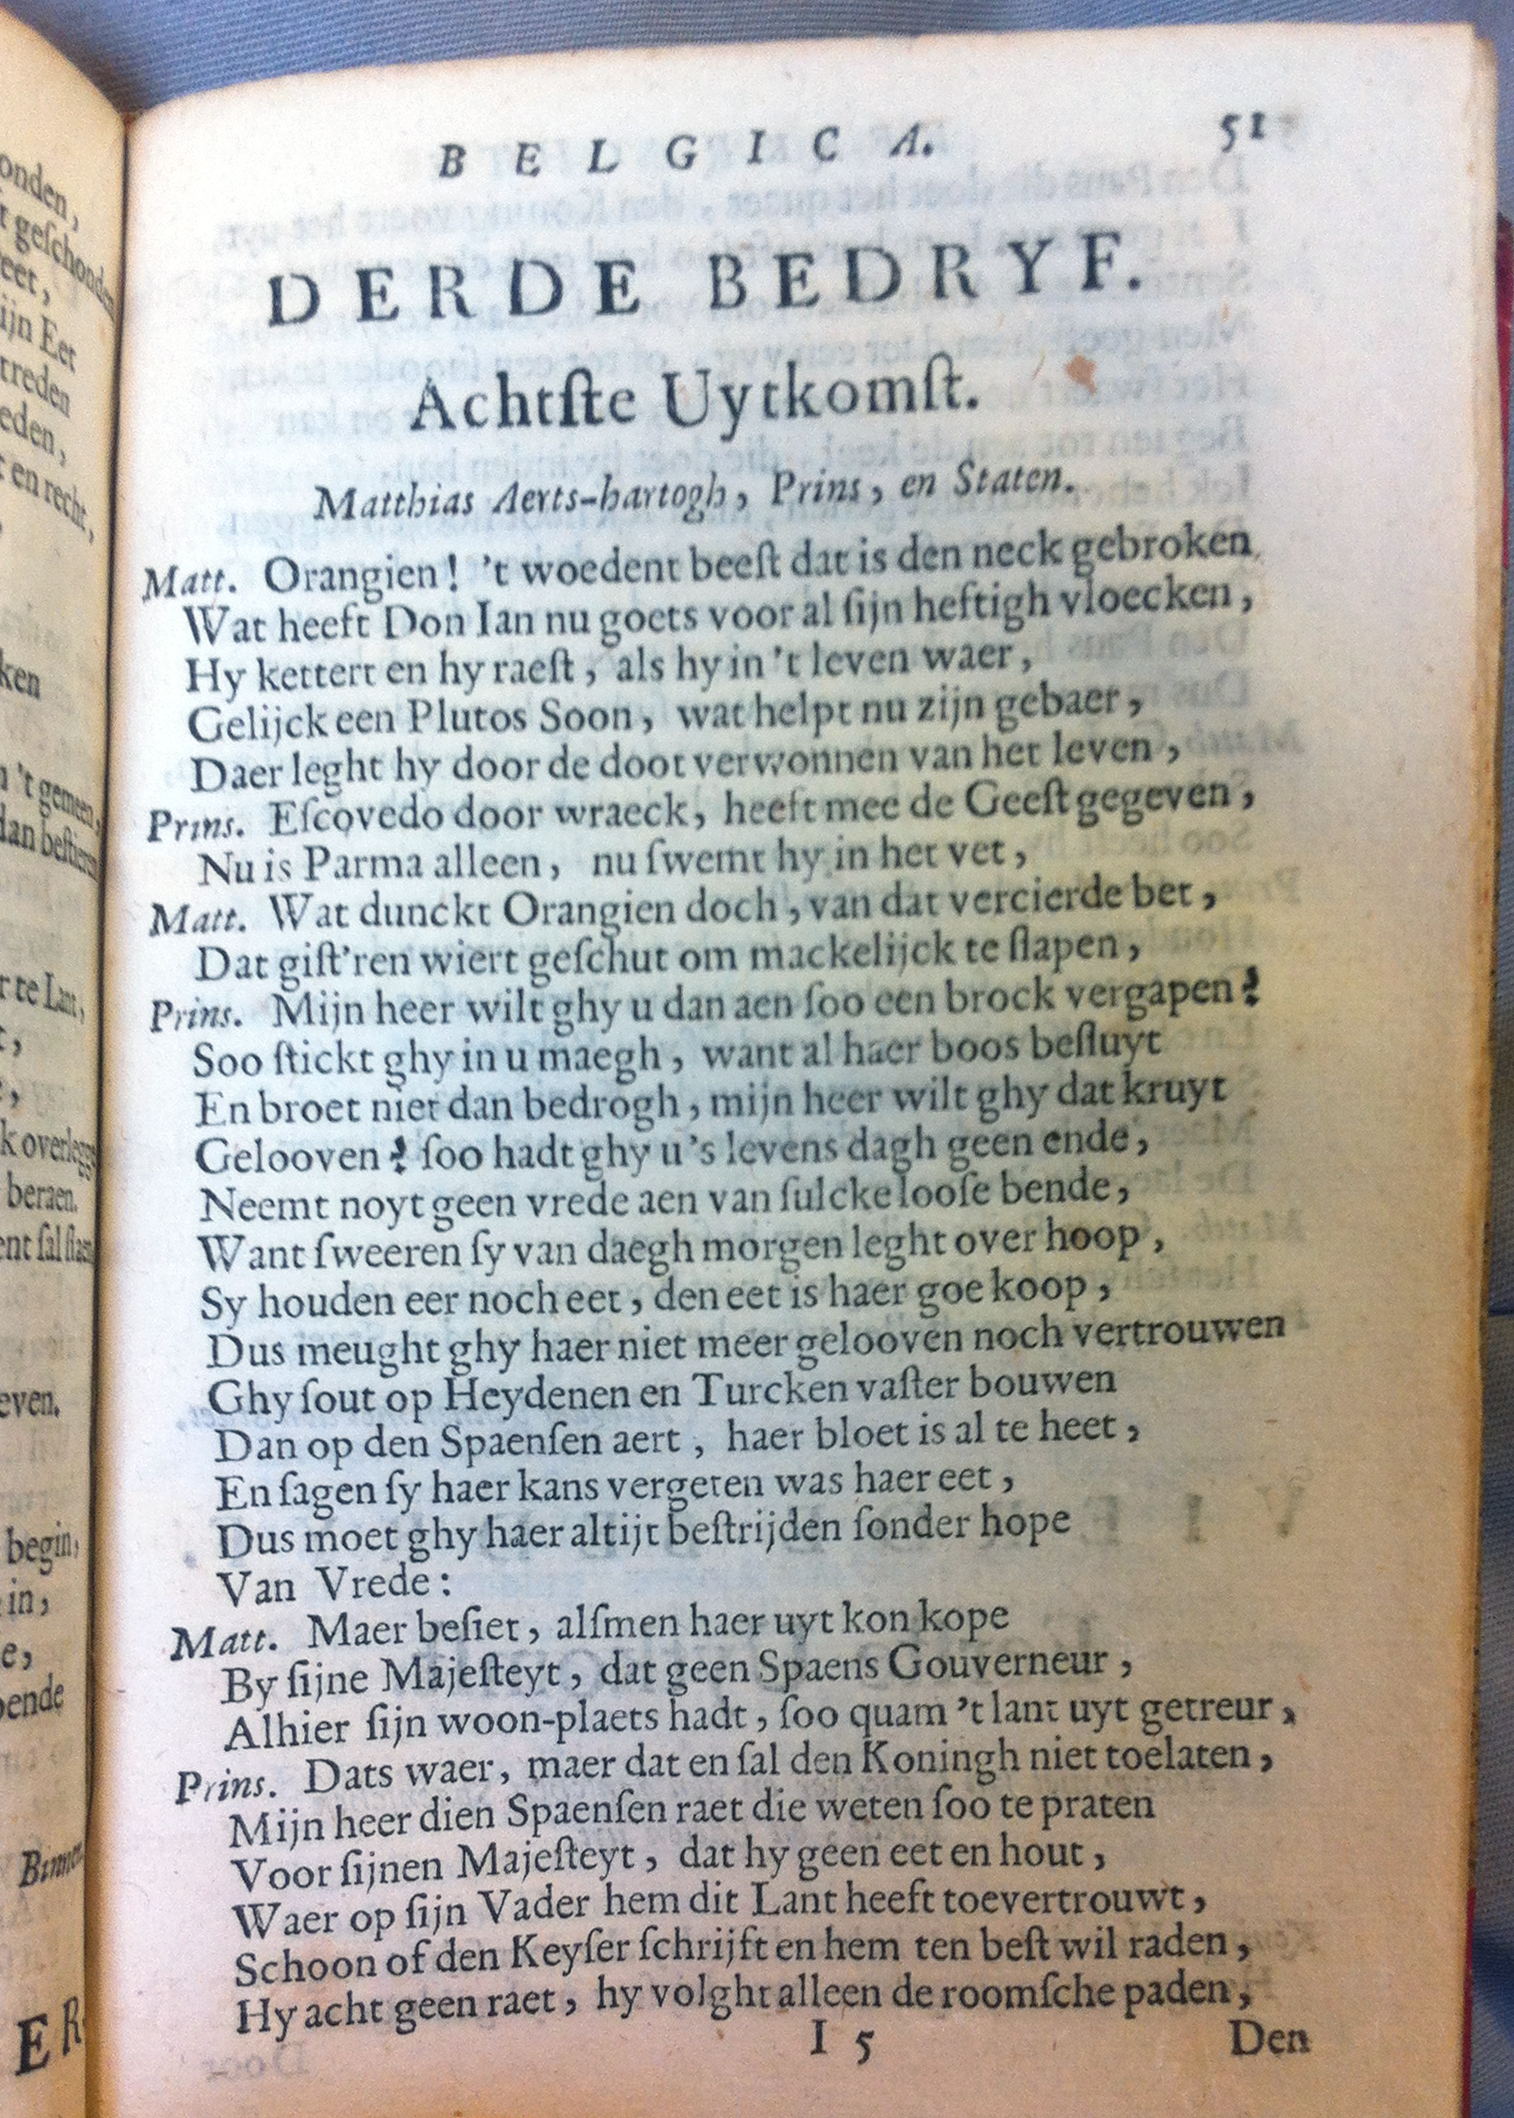 BELGICA. 51
DERDE BEDRYF.
Achtſte Uytkomſt.
Matthias Aerts-hartogh, Prins, en Staten.
Matt. Orangien! 't woedent beeſt dat is den neck gebroken,
Wat heeft Don Ian nu goets voor al ſijn heftigh vloecken,
Hy kettert en hy raeſt, als hy in 't leven waer,
Gelijck een Plutos Soon, wat helpt nu zijn gebaer,
Daer leght hy door de doot verwonnen van het leven,
Prins. Eſcovedo door wraeck, heeft mee de Geeſt gegeven,
Nu is Parma alleen, nu ſwemt hy in het vet,
Matt. Wat dunckt Orangien doch, van dat vercierde bet,
Dat giſt'ren wiert geſchut om mackelijck te ſlapen,
Prins. Mijn heer wilt ghy u dan aen ſoo een brock vergapen?
Soo ſtickt ghy in u maegh, want al haer boos beſluyt
En broet niet dan bedrogh, mijn heer wilt ghy dat kruyt
Gelooven? ſoo hadt ghy u's levens dagh geen ende,
Neemt noyt geen vrede aen van ſulcke looſe bende,
Want ſweeren ſy van daegh morgen leght over hoop,
Sy houden eer noch eet, den eet is haer goe koop,
Dus meught ghy haer niet meer gelooven noch vertrouwen
Ghy ſout op Heydenen en Turcken vaſter bouwen
Dan op den Spaenſen aert, haer bloet is al te heet,
En ſagen ſy haer kans vergeten was haer eet,
Dus moet ghy haer altijt beſtrijden ſonder hope
Van Vrede:
Matt. Maer beſiet, alſmen haer uyt kon kope
By ſijne Majeſteyt, dat geen Spaens Gouverneur,
Alhier ſijn woon-plaets hadt, ſoo quam 't lant uyt getreur,
Prins. Dats waer, maer dat en ſal den Koningh niet toelaten,
Mijn heer dien Spaenſen raet die weten ſoo te praten
Voor ſijnen Majeſteyt, dat hy geen eet en hout,
Waer op ſijn Vader hem dit Lant heeft toevertrouwt,
Schoon of den Keyſer ſchrijft en hem ten beſt wil raden,
Hy acht geen raet, hy volght alleen de roomſche paden,
I 5 Den